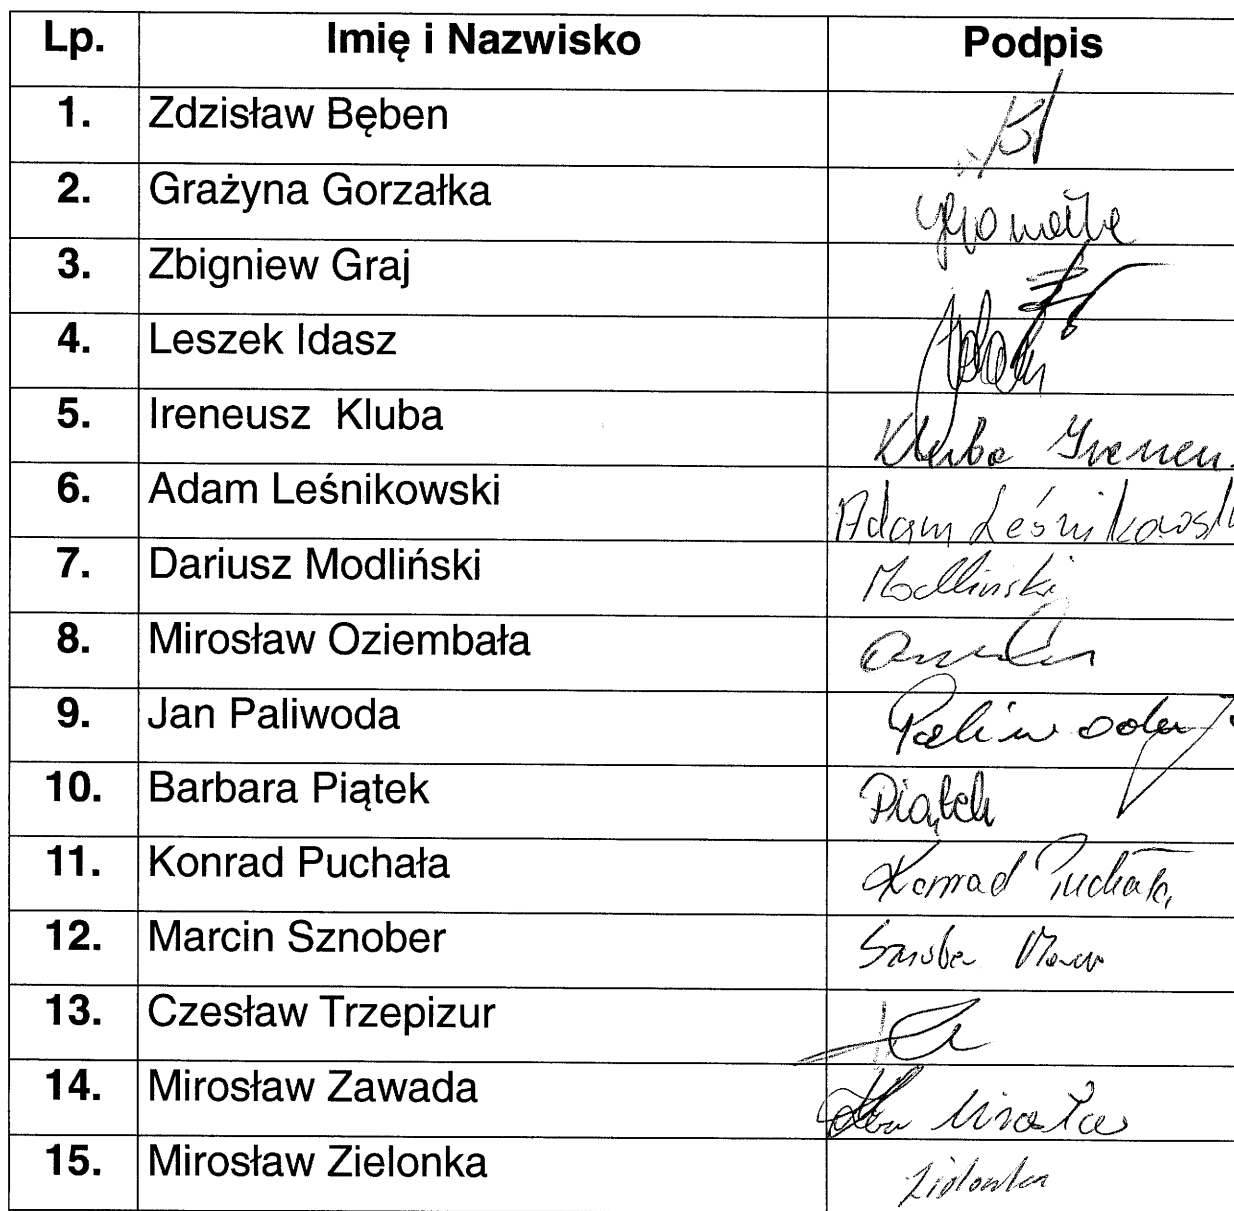 Lp. Imię i Nazwisko Podpis
1. Zdzisław Bęben
2. Grażyna Gorzałka
3. Zbigniew Graj
4. Leszek Idasz
5. Ireneusz Kluba Kluba Ireneu
6. Adam Leśnikowski Adam Leśnikowski
7. Dariusz Modliński Modliński
8. Mirosław Oziembała
9. Jan Paliwoda Paliwoda J
10. Barbara Piątek Piątek
11. Konrad Puchała Konrad Puchała
12. Marcin Sznober
13. Czesław Trzepizur
14. Mirosław Zawada
15. Mirosław Zielonka